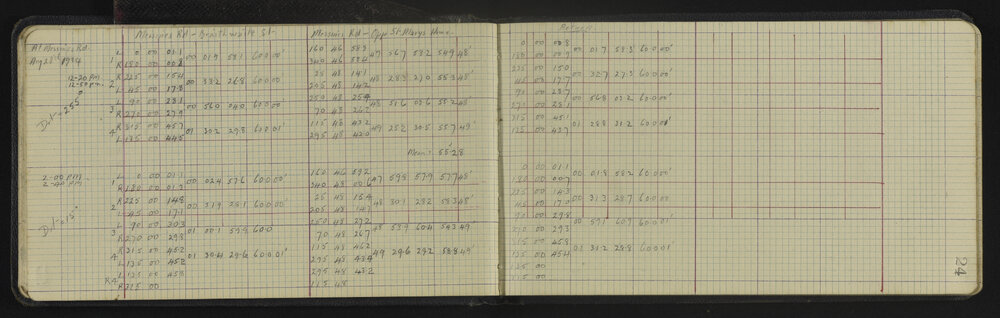 Messines Rd - Braithwaite St. Messines Rd - Opp St Marys Home Return
At Messines Rd
Aug 28th 1934
L 0 00 01.1 160 46 58.3 0 00 00.8
1 00 01.9 58.1 60 00 00' 47 56.7 58.2 54.9 48' 00 01.7 58.3 60 00'
R 180 00 00.8 340 46 58.4 180 00 00.9
12-20 P.M. R 225 00 15.4 25 48 14.1 225 00 15.0
12-50 P.M. 2 00 33.2 26.8 60 00' 48 28.3 27.0 55.3 48' 00 32.7 27.3 60 00'
L 45 00 17.8 205 48 14.2 45 00 17.7
L 90 00 28.1 250 48 25.4 90 00 28.7
3 00 56.0 04.0 60 00' 48 51.6 03.6 55.2 48' 00 56.8 03.2 60 00'
R 270 00 27.9 70 48 26.2 270 00 28.1
R 315 00 45.7 115 48 43.2 315 00 45.1
4 01 30.2 29.8 60 01' 49 25.2 30.5 55.7 49' 01 28.8 31.2 60 01'
L 135 00 44.5 295 48 42.0 135 00 43.7
Mean = 55.28
2-00 P.M. L 0 00 01.1 160 46 59.2 0 00 01.1
2-40 P.M. 1 00 02.4 57.6 60 00 00' 47 59.8 57.9 57.7 48' 00 01.8 58.2 60 00'
R 180 00 01.3 340 48 00.6 180 00 00.7
R 225 00 14.8 25 48 15.4 225 00 14.3
2 00 31.9 28.1 60 00' 48 30.1 28.2 58.3 48' 00 31.3 28.7 60 00'
L 45 00 17.1 205 48 14.7 45 00 17.0
L 90 00 30.3 250 48 27.2 90 00 29.8
3 01 00.1 59.9 60 0 48 53.9 60.4 54.3 49' 00 59.1 60.9 60 00'
R 270 00 29.8 70 48 26.7 270 00 29.3
R 315 00 45.2 115 48 46.2 315 00 45.8
4 01 30.4 29.6 60 00 01' 49 29.6 29.2 58.8 49' 01 31.2 28.8 60 01'
L 135 00 45.2 295 48 43.4 135 00 45.4
L 135 00 45.8 295 48 43.2 135 00
R4
R 315 00 115 48 315 00
24